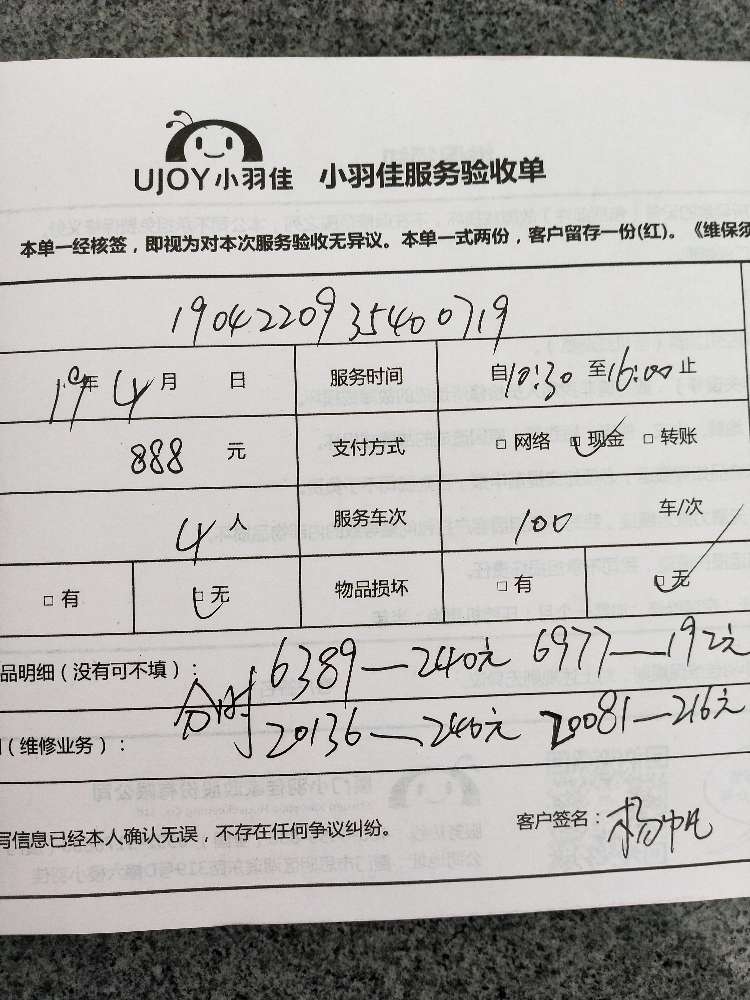 UJOY小羽佳 小羽佳服务验收单
本单一经核签，即视为对本次服务验收无异议。本单一式两份，客户留存一份(红)。《维保须
1904220935400719
19年 4月 日 服务时间 自10:30至16:00止
888 元 支付方式 □ 网络 □ 现金 □ 转账
4人 服务车次 100 车/次
□ 有 □ 无 物品损坏 □ 有 □ 无
品明细（没有可不填）： 6389—240元 6977—192元
（维修业务）： 20136—240元 20081—216元
写信息已经本人确认无误，不存在任何争议纠纷。 客户签名：杨帆